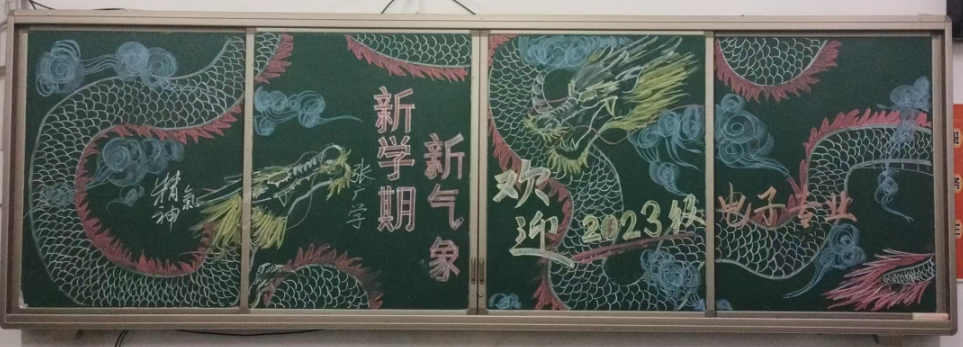 精氣
神
新学期
新气象
欢迎2023级电子专业